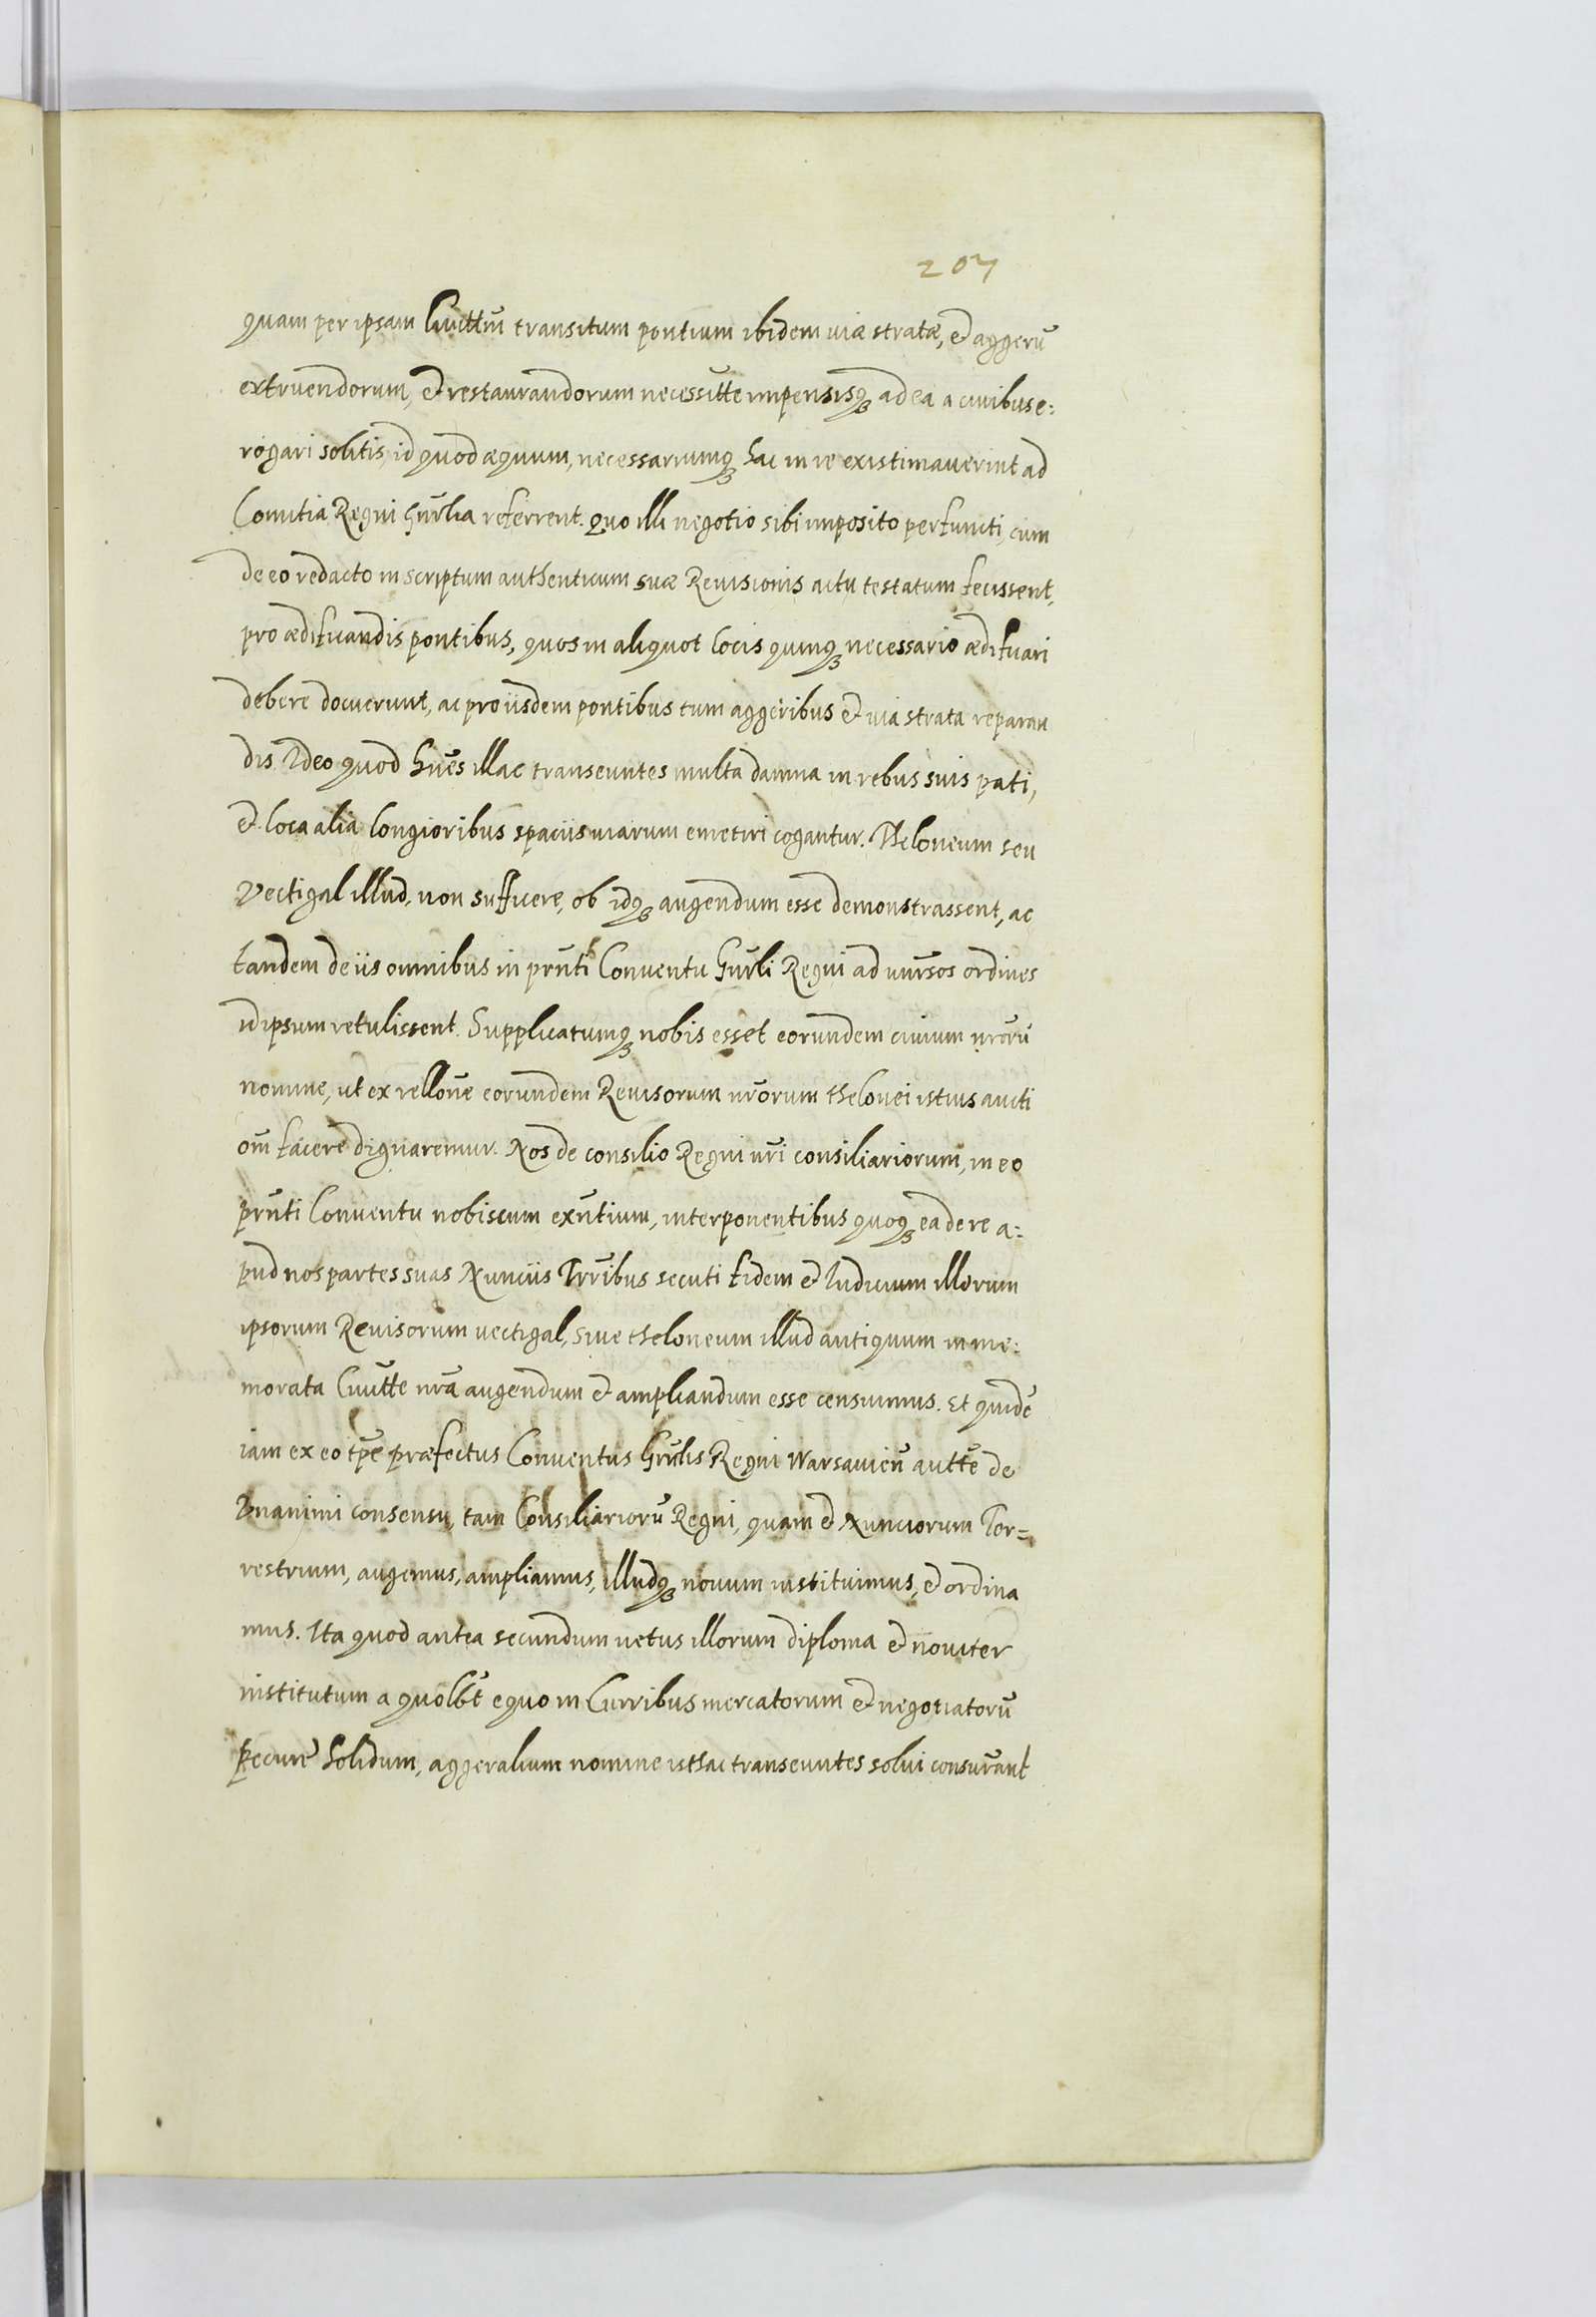 207
quam per ipsam Ciuittm̄ transitum pontium ibidem uiæ stratæ, et aggerū
extruendorum, et restaurandorum necessitte impensisq₃ ad ea a ciuibus e:
rogari solitis, id quod æquum, necessariumq₃ hac in re existimauerint ad
Comitia Regni Gn̄rlia referrent. Quo illi negotio sibi imposito perfuncti, cum
de eo redacto in scriptum authenticum suæ Reuisionis actu testatum fecissent,
pro ædificandis pontibus, quos in aliquot locis quinq₃ necessario ædificari
debere docuerunt, ac pro iisdem pontibus tum aggeribus et uia strata reparan
dis. Ideo quod hn̄es illac transeuntes multa damna in rebus suis pati,
et loca alia longioribus spaciis uiarum emetiri cogantur. Theloneum seu
Vectigal illud, non sufficere, ob idq₃ augendum esse demonstrassent, ac
tandem de iis omnibus in prn̄ti Conuentu Gn̄rli Regni ad uniu͞rsos ordines
id ipsum retulissent. Supplicatumq₃ nobis esset eorundem ciuium nr̄orū
nomine, ut ex relloñe eorundem Reuisorum nr̄orum thelonei istius aucti
om̄ facere dignaremur. Nos de consilio Regni nr̄i consiliariorum, in eo
prn̄ti Conuentu nobiscum exn̄tium, interponentibus quoq₃ ea de re a:
pud nos partes suas Nunciis Trr̄ibus secuti fidem et Iudicium illorum
ipsorum Reuisorum uectigal, siue theloneum illud antiquum in me:
morata Ciuitte nr̄a augendum et ampliandum esse censuimus. Et quidē
iam ex eo tp̄e præfectus Conuentus Gn̄rlis Regni Warsauien̄ autte de
Vnanimi consensu, tam Consiliariorū Regni, quam et Nunciorum Ter=
restrium, augemus, ampliamus, illudq₃ nouum instituimus, et ordina
mus. Ita quod antea secundum uetus illorum diploma et nouiter
institutum a quolb̄t equo in Curribus mercatorum et negotiatorū
Pecuniæ Solidum, aggeralium nomine isthac transeuntes solui consueur̄ant